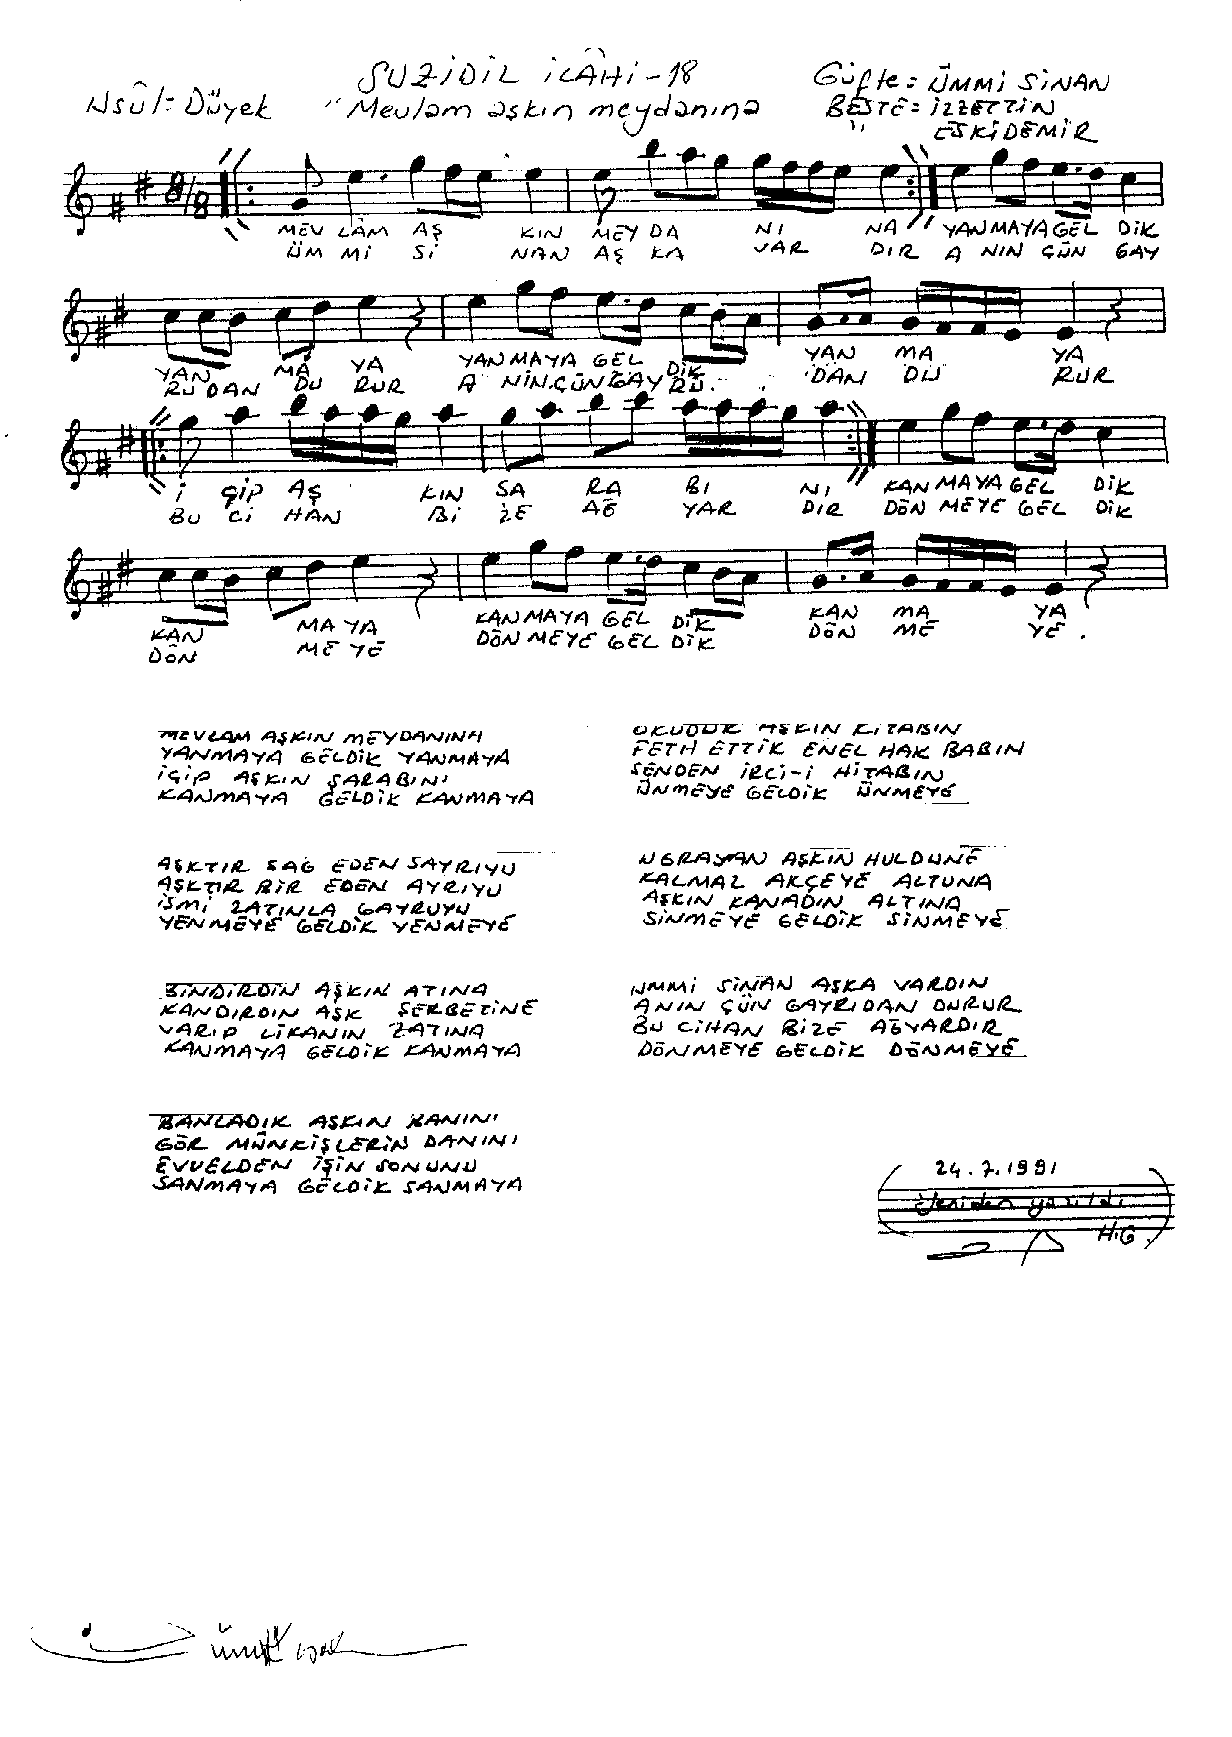 SUZİDİL İLÂHİ-18
Usûl: Düyek "Mevlam aşkın meydanına" Güfte: ÜMMİ SİNAN
BESTE: İZZETTİN
ESKİDEMİR
8/8
MEV LÂM AŞ KIN MEY DA NI NA YANMAYA GEL DİK
ÜM Mİ Sİ NAN AŞ KA VAR DIR A NIN ÇÜN GAY
YAN MA YA YANMAYA GEL DİK YAN MA YA
RU DAN DU RUR A NIN.ÇÜN GAY RÛ. DAN DU RUR
İ ÇİP AŞ KIN SA RA BI NI KAN MAYA GEL DİK
BU Cİ HÂN Bİ ZE AĞ YAR DIR DÖN MEYE GEL DİK
KAN MA YA KANMAYA GEL DİK KAN MA YA
DÖN ME YE DÖN MEYE GEL DİK DÖN ME YE.
MEVLAM AŞKIN MEYDANINA
YANMAYA GELDİK YANMAYA
İÇİP AŞKIN ŞARABINI
KANMAYA GELDİK KANMAYA
AŞKTIR SAĞ EDEN SAYRIYU
AŞKTIR BİR EDEN AYRIYU
İSMİ ZATINLA GAYRUYU
YENMEYE GELDİK YENMEYE
BİNDİRDİN AŞKIN ATINA
KANDIRDIN AŞK ŞERBETİNE
VARIP LİKANIN ZATINA
KANMAYA GELDİK KANMAYA
BANLADIK AŞKIN BANINI
GÖR MÜNKİŞLERİN DANINI
EVVELDEN İŞİN SONUNU
SANMAYA GELDİK SANMAYA
OKUDUK AŞKIN KİTABIN
FETH ETTİK ENEL HAK BABIN
SENDEN İRCİ-İ HİTABIN
ÜNMEYE GELDİK ÜNMEYE
UĞRAYAN AŞKIN HULDUNE
KALMAZ AKÇEYE ALTUNA
AŞKIN KANADIN ALTINA
SİNMEYE GELDİK SİNMEYE
UMMİ SİNAN AŞKA VARDIN
ANIN ÇÜN GAYRIDAN DURUR
BU CİHAN BİZE AĞYARDIR
DÖNMEYE GELDİK DÖNMEYE
24.7.1991
Yeniden yazıldı
H.G.